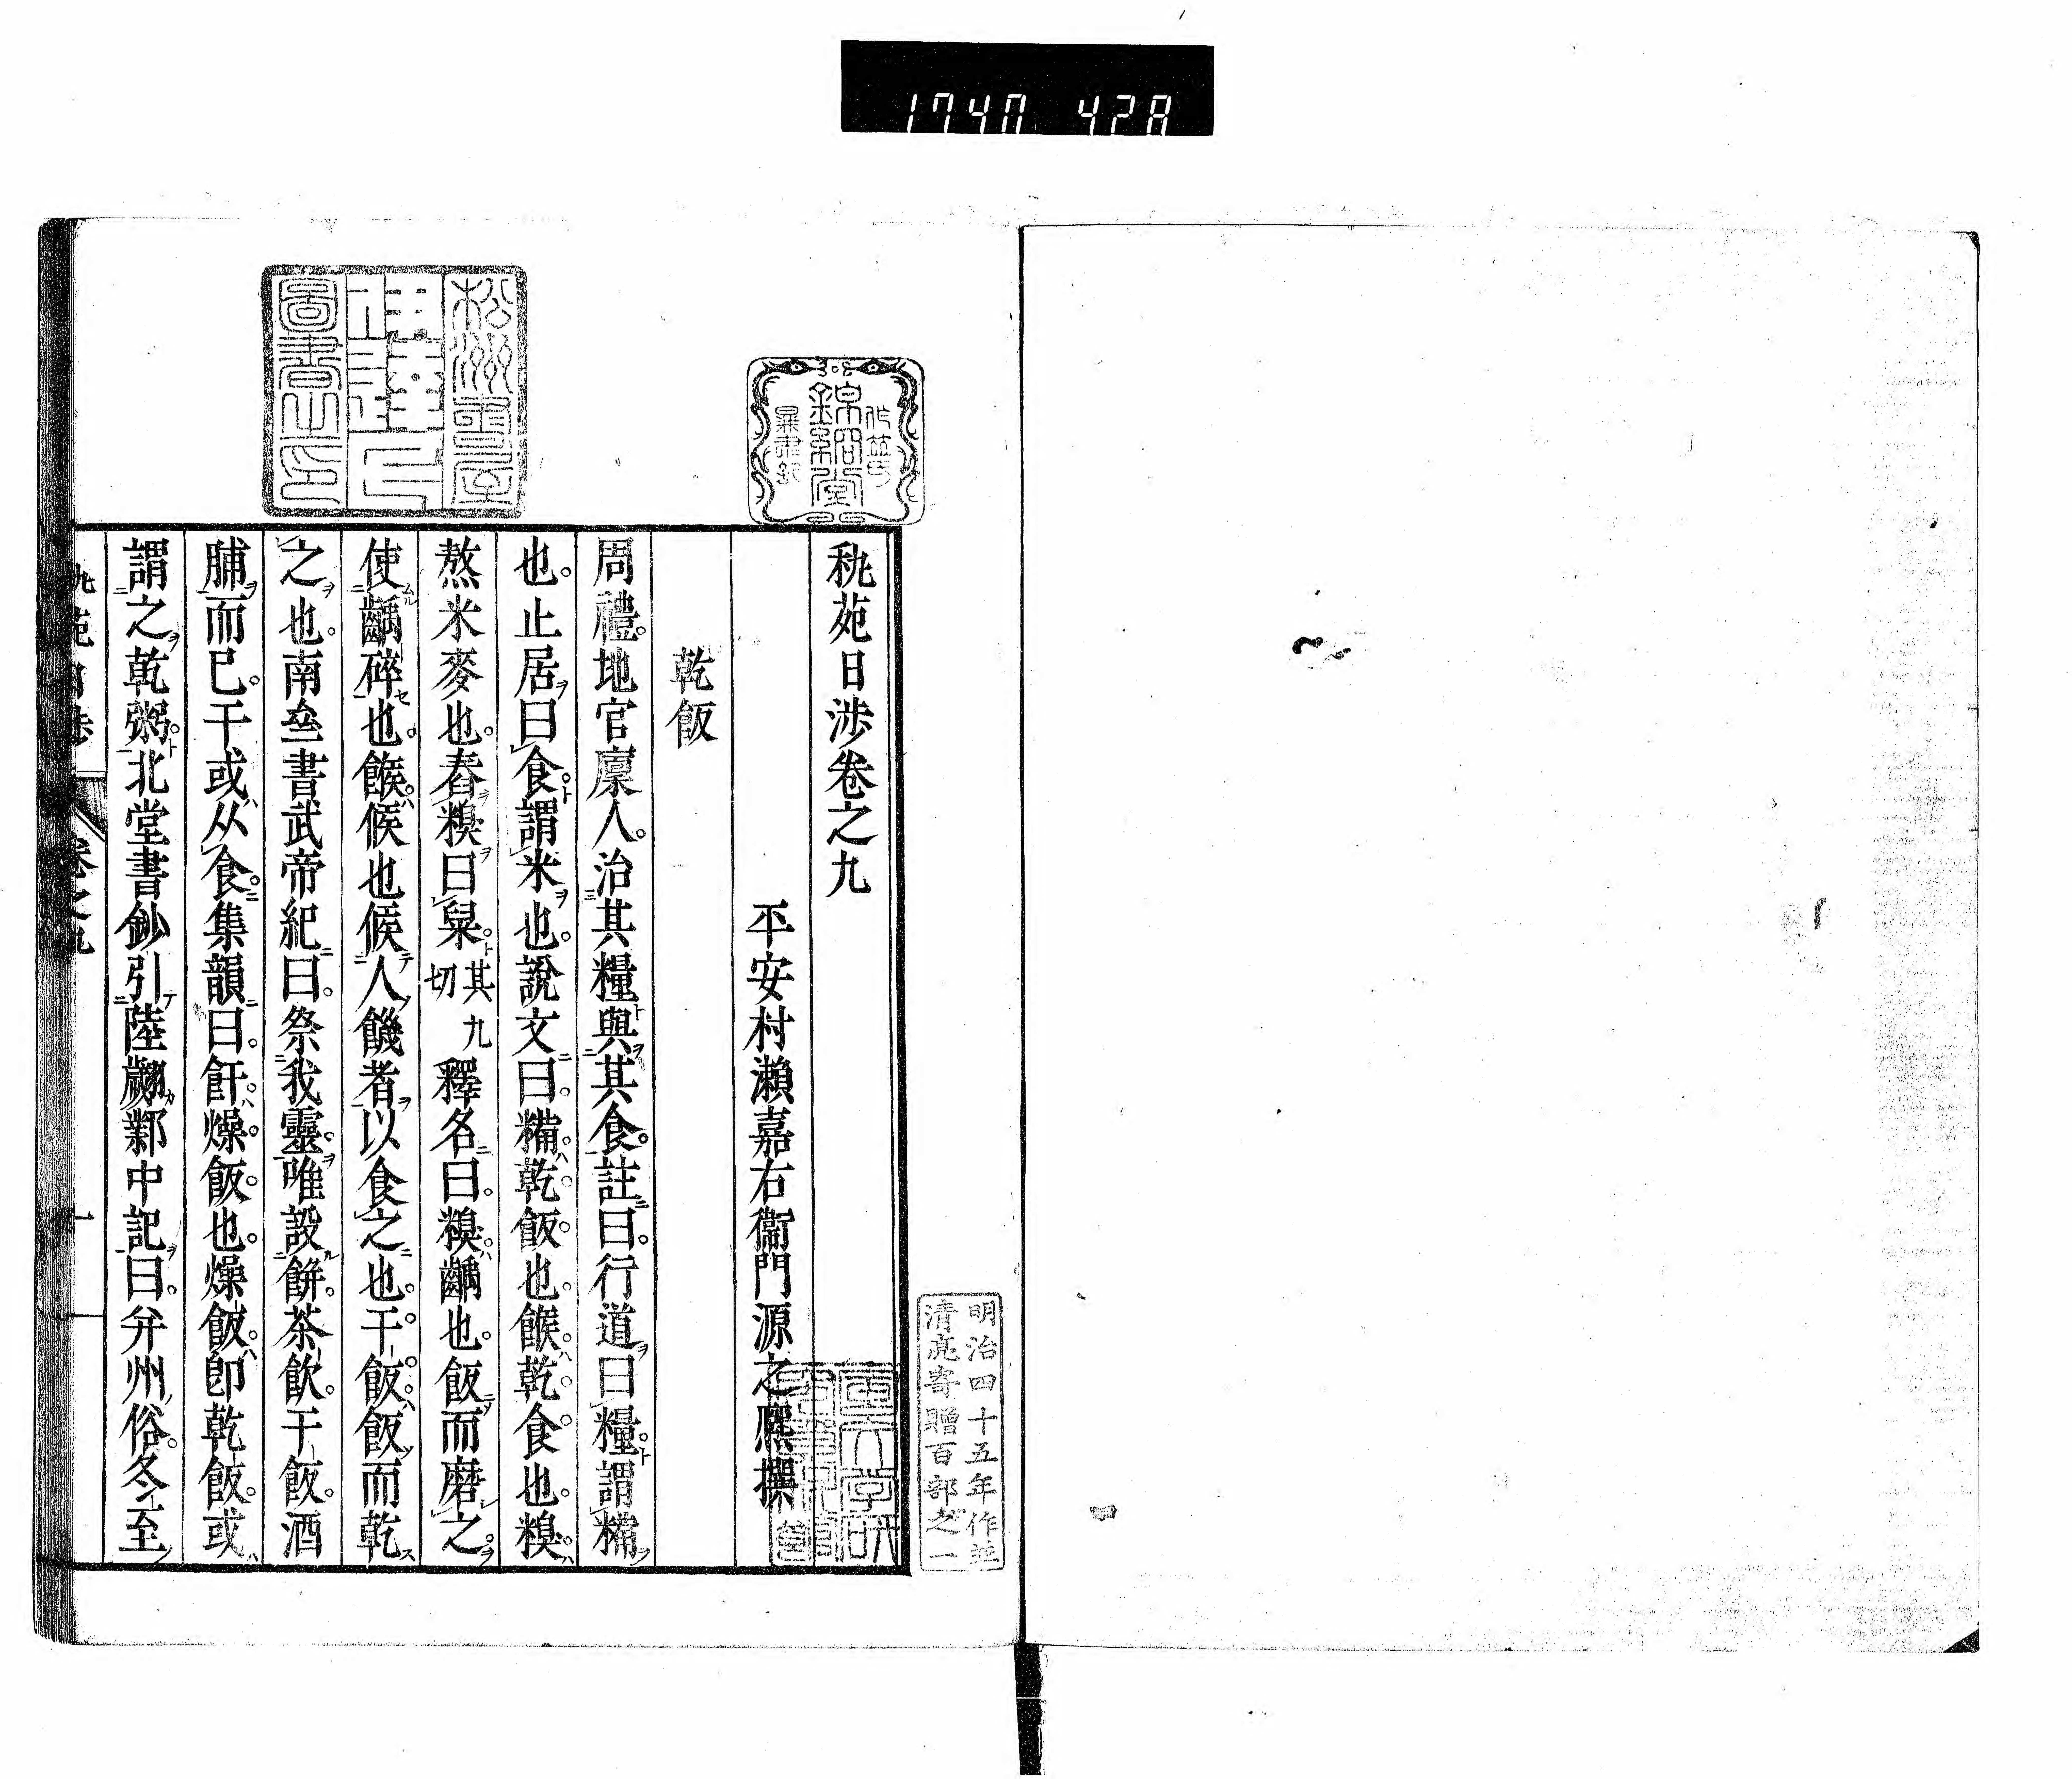 1740 428
秇苑日渉卷之九
平安村瀬嘉右衞門源之熈撰
乾飯
周禮。地官廩人。治其糧與其食。註曰。行道曰糧。謂糒
也。止居曰食。謂米也。說文曰。糒。乾飯也。餱。乾食也。糗。
熬米麥也。舂糗曰䊆。其九切釋名曰。糗。齲也。飯而磨之。
使齲碎也。餱。候也候人饑者以食之也。干飯。飯而乾
之也。南齊書武帝紀曰。祭我靈。唯設餅。茶飲。干飯。酒
脯而已。干或从食。集韻曰。飦。燥飯也。燥飯。即乾飯。或
謂之乾粥。北堂書鈔引陸翽鄴中記曰。弁州俗。冬至
秇苑日渉 卷之九 一
松洲書屋
圖書之印
錦絅堂
明治四十五年作並
清亮寄贈百部之一